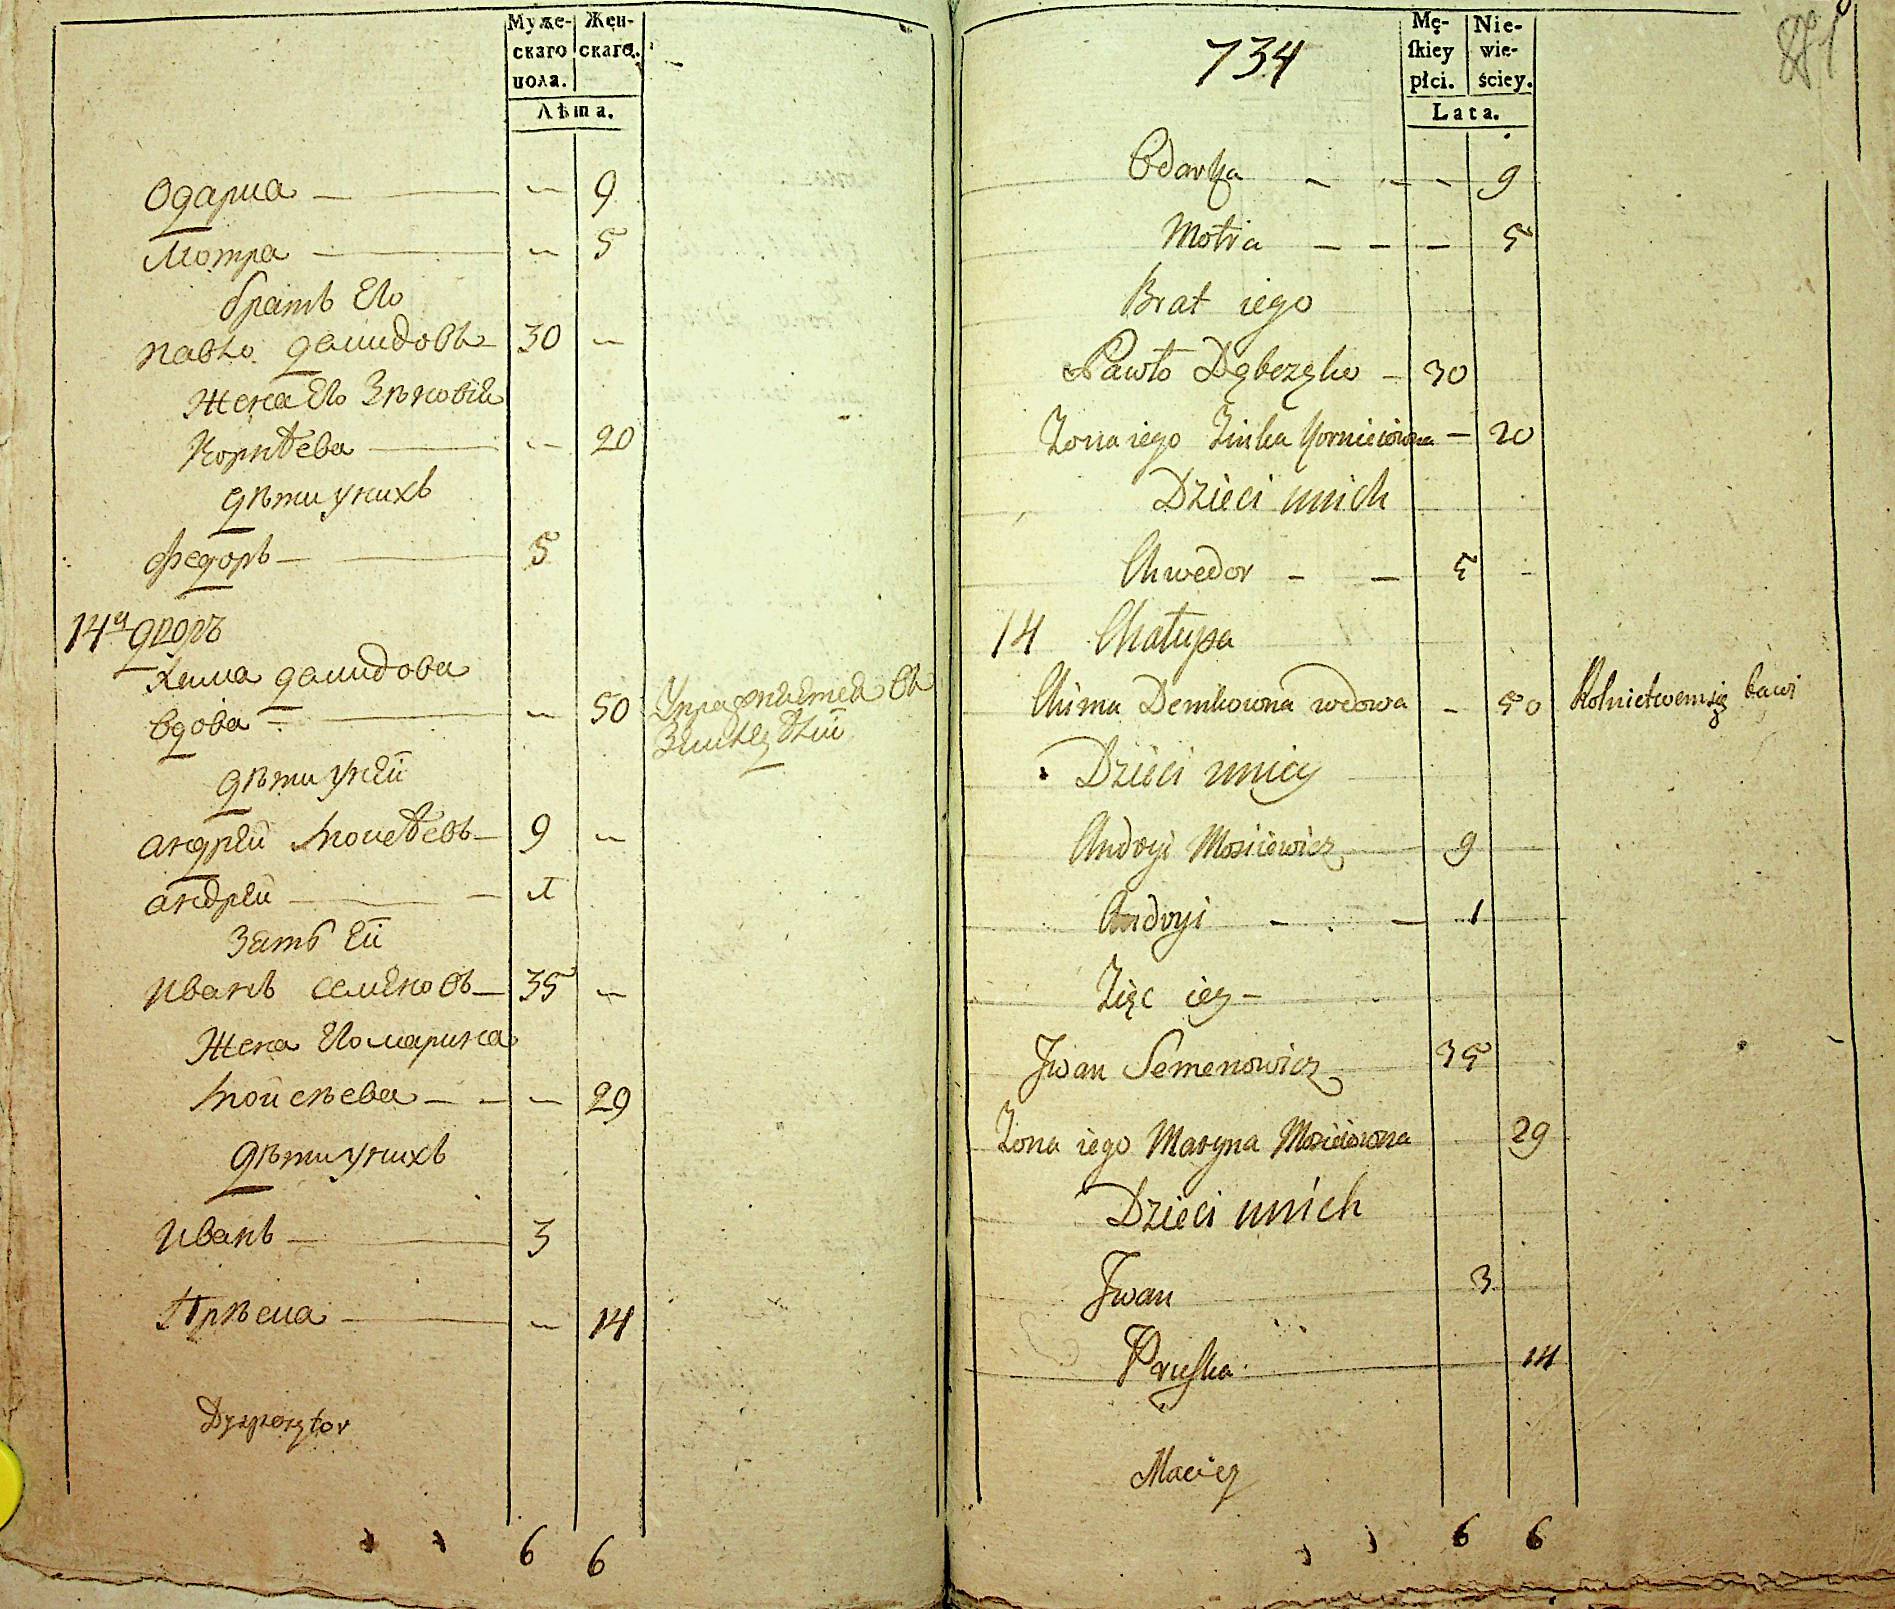 Муже-
скаго
пола.
Жен-
скаго.
Лѣта.
Одарка — — 9
Мотра — — 5
братъ Его
Павло Дамидовъ 30 —
Жена Его Зѣновія
Корнѣева — — 20
Дѣти у нихъ
Федоръ — 5
14й дворъ
Хима Дамидова
вдова — — 50 Упражняется въ
Земледѣліи
Дѣти у ней
Андрей Мосѣевъ — 9 —
Андрей — 1
Зять Ей
Иванъ Семеновъ — 35 —
Жена Его Марина
Мойсѣева — — — 29
Дѣти у нихъ
Иванъ — 3
Прѣска — — 14
Dyspozytor
6 6
734
Mę-
skiey
płci.
Nie-
wie-
ściey.
Lata.
Odarka — — — 9
Motra — — — 5
Brat iego
Pawło — 30
Żona iego Zinka Kornieiowna — 20
Dzieci u nich
Chwedor — — 5 -
14 Chałupa
Chima Demkowna wdowa - 50 Rolnictwem się bawi
Dzieci u niey
Andryi Mosiiowicz 9
Andryi — — 1
Zięc iey —
Jwan Semenowicz 35
Żona iego Maryna Mosieiowna 29
Dzieci u nich
Jwan 3
Pruska 14
Maciey
6 6